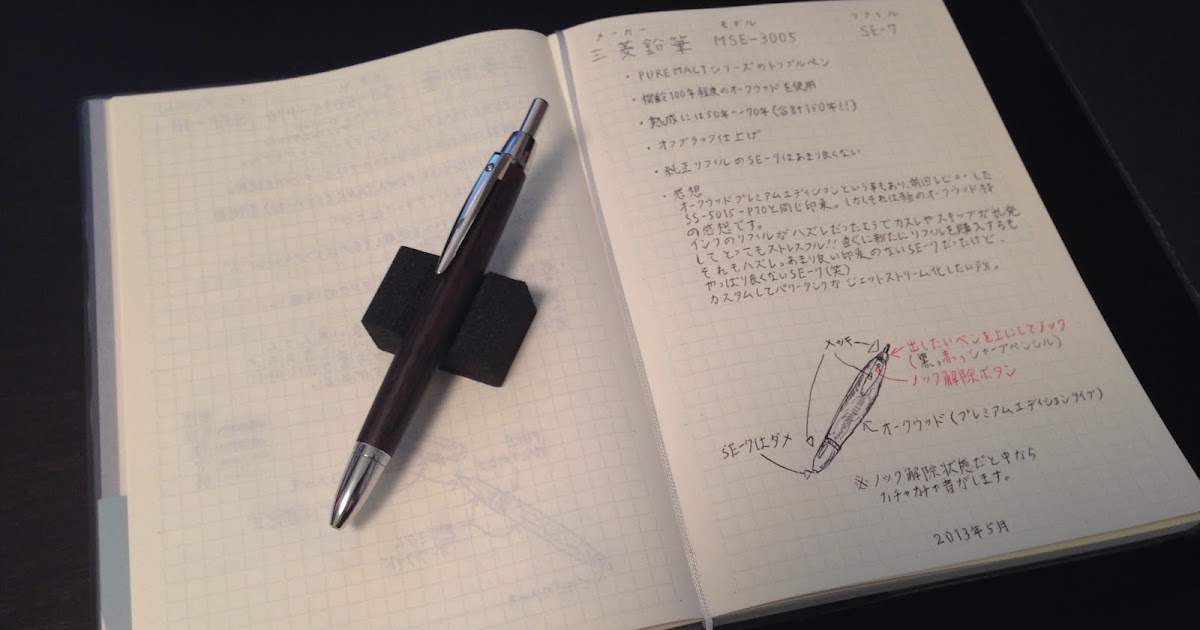 メーカー モデル リフィル
三菱鉛筆 MSE-3005 SE-7
・PURE MALTシリーズのトリプルペン
・樹齢100年程度のオークウッドを使用
・熟成には50年〜70年(合計150年!!)
・オフブラック仕上げ
・純正リフィルのSE-7はあまり良くない
・感想
オークウッドプレミアムエディションという事もあり、前回レビューした
SS-5015-P70と同じ印象。しかしそれは軸のオークウッド材
の感想です。
インクのリフィルがハズレだったようでカスレやスキップが乱発
してとってもストレスフル!!直ぐに新たにリフィルを購入するも
それもハズレっあまり良い印象のないSE-7だったけど、
やっぱり良くないSE-7(笑)
カスタムしてパワータンクかジェットストリーム化したい所。
メッキー
出したいペンを上にしてノック
(黒っ赤っシャープペンシル)
ノック解除ボタン
オークウッド(プレミアムエディションタイプ)
SE-7はダメ
※ノック解除状態だと中なら
カチャカチャ音がします。
2013年5月